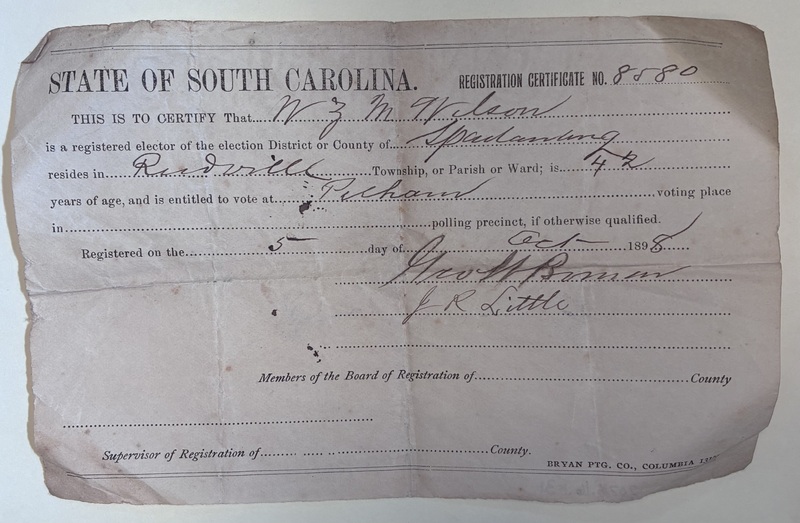 STATE OF SOUTH CAROLINA. REGISTRATION CERTIFICATE NO. 8580
THIS IS TO CERTIFY That W Z M Wilson
is a registered elector of the election District or County of Spartanburg
resides in Reidville Township, or Parish or Ward; is 42
years of age, and is entitled to vote at Pelham voting place
in polling precinct, if otherwise qualified.
Registered on the 5 day of Oct 1898
Geo W
J R Little
Members of the Board of Registration of County
Supervisor of Registration of County.
BRYAN PTG. CO., COLUMBIA